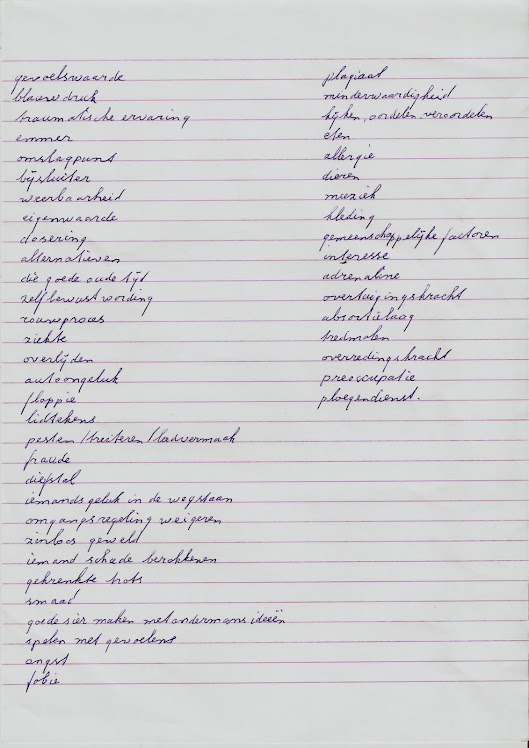 gevoelswaarde
blauwdruk
traumatische ervaring
emmer
omslagpunt
bijsluiter
weerbaarheid
eigenwaarde
dosering
alternatieven
die goede oude tijd
zelfbewustwording
rouwproces
ziekte
overlijden
autoongeluk
floppie
lidtekens
pesten/treiteren/leedvermaak
fraude
diefstal
iemands geluk in de weg staan
omgangsregeling weigeren
zinloos geweld
iemand schade berokkenen
gekrenkte trots
smaad
goede sier maken met andermans ideeën
spelen met gevoelens
angst
fobie
plagiaat
minderwaardigheid
kijken, oordelen, veroordelen
eten
allergie
dieren
muziek
kleding
gemeenschappelijke factoren
interesse
adrenaline
overtuigingskracht
absortielaag
tredmolen
overredingskracht
preoccupatie
ploegendienst.